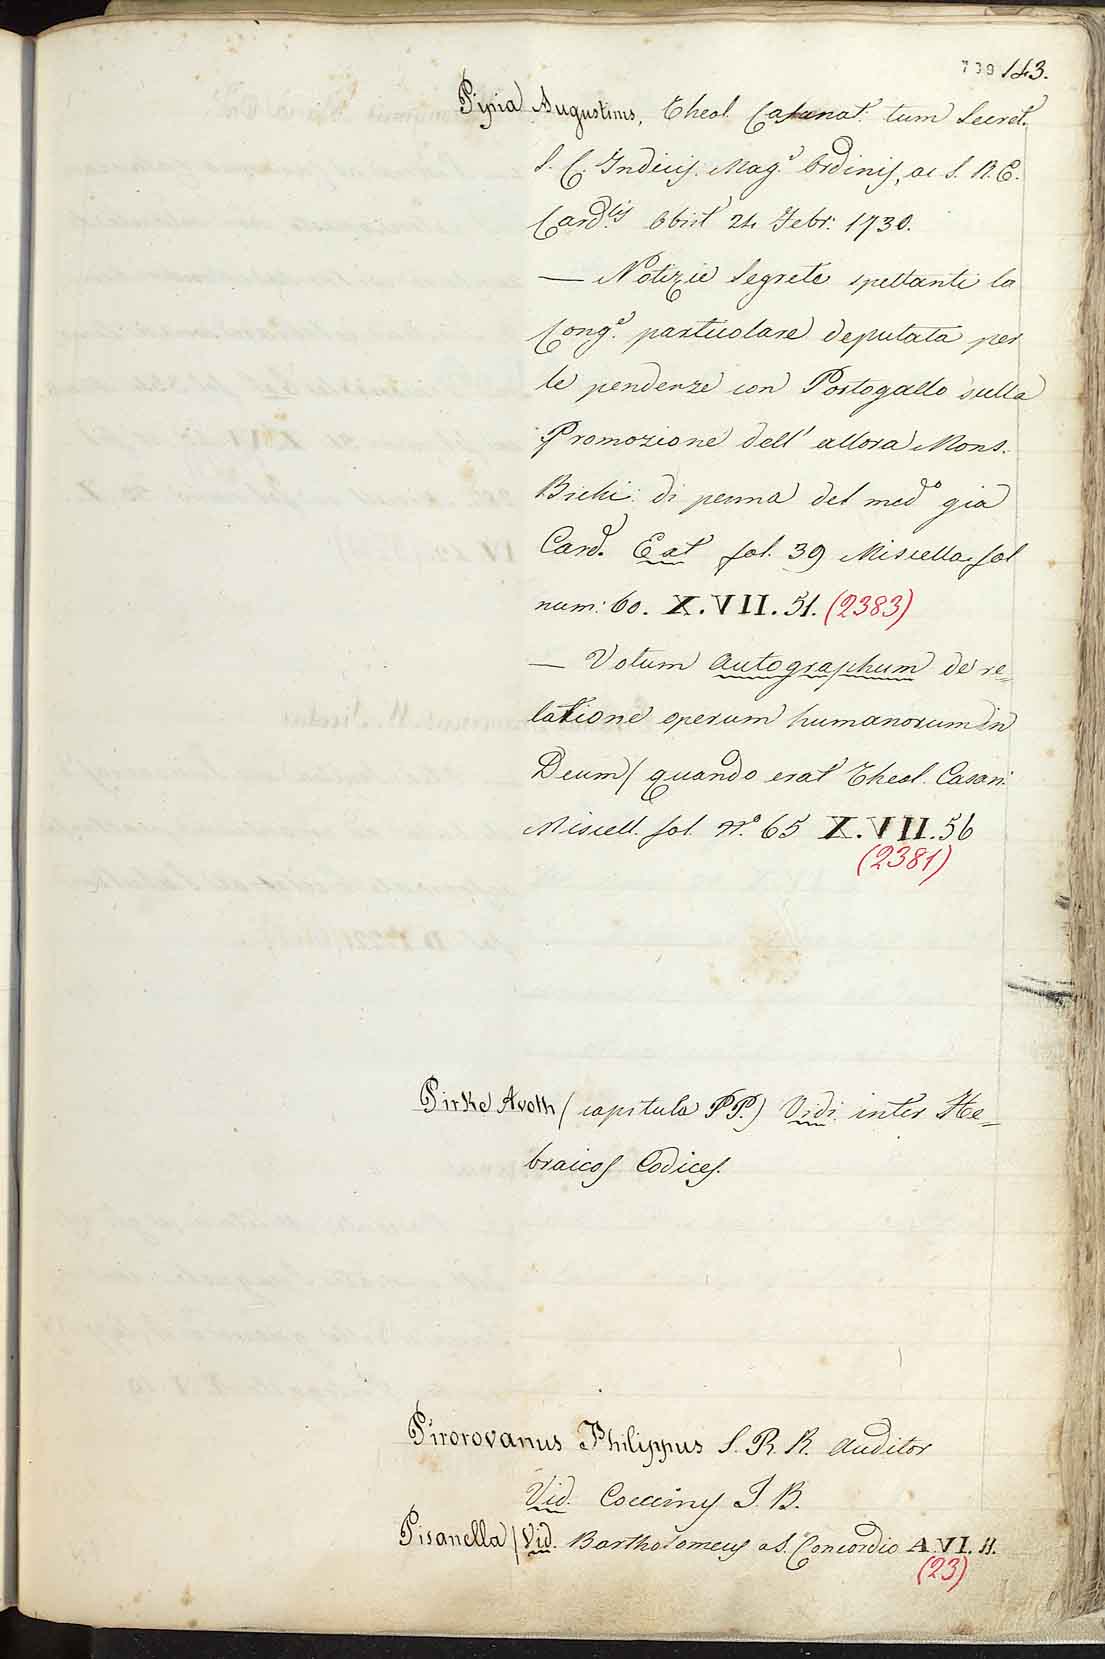 739 143.
Pipia Augustinus, Theol. Casanat: tum Secret.
S. C. Indicis. Mag.r Ordinis, ac S. R. E.
Card.lis Obiit 24 Febr: 1730.
— Notizie Segrete spettanti la
Cong.e particolare deputata per
le pendenze con Portogallo sulla
Promozione dell' allora Mons.
Bichi: di penna del med.o gia
Card. Eat fol. 39 Miscella. fol
num: 60. X.VII.51. (2383)
— Votum autographum de re=
latione operum humanorum in
Deum/ quando erat Theol. Casan:
Miscell. fol. N.o 65 X.VII.56
(2381)
Pirke Avoth (capitula PP.) Vidi inter He=
braicos Codices.
Pirorovanus Philippus S. R. R. Auditor
Vid. Coccinus J. B.
Pisanella / Vid. Bartholomeus a S. Concordio A.VI.11.
(23)